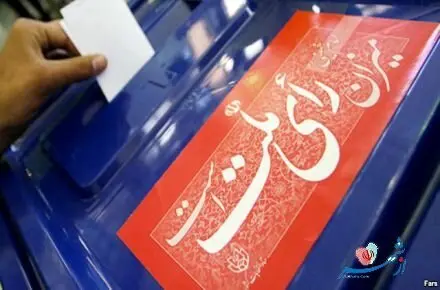 میزان
رأی
ملّت
است
Fars